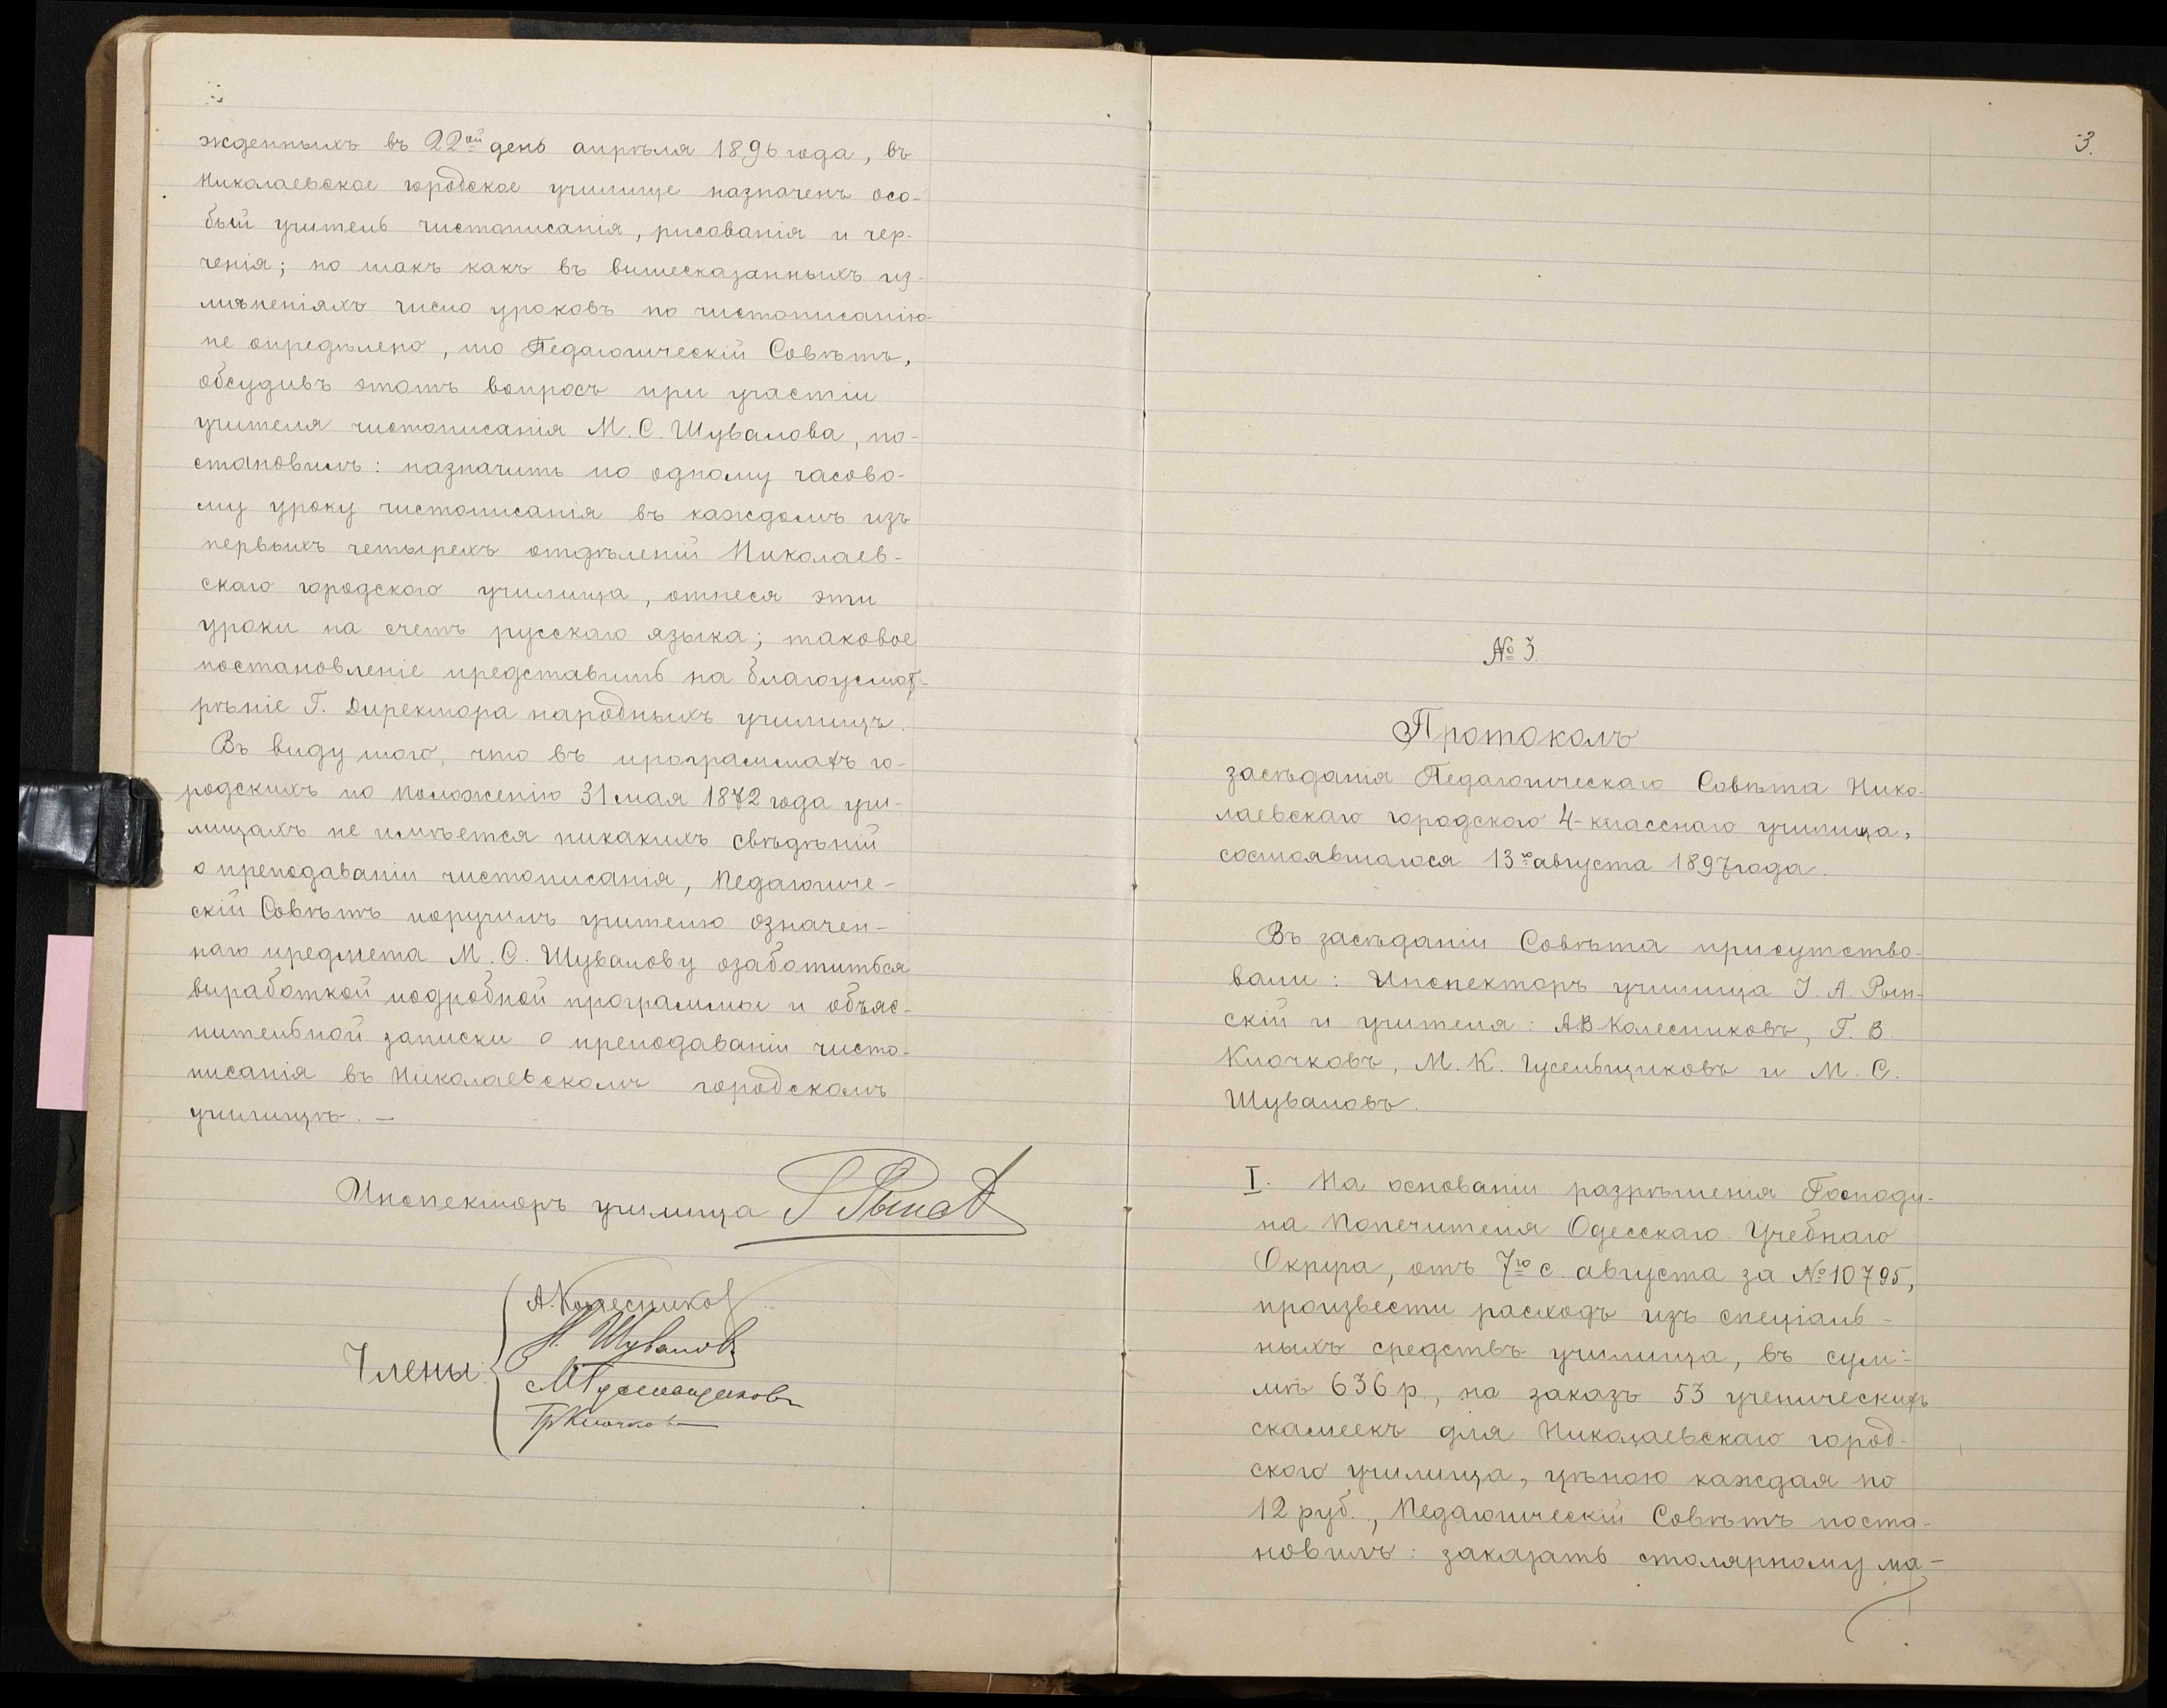 жденныхъ въ 22ой день апрѣля 1896 года, въ
Николаевское городское училище назначенъ осо-
бый учитель чистописанія, рисованія и чер-
ченія; но такъ какъ въ вышесказанныхъ из-
мѣненіяхъ число уроковъ по чистописанію
не опредѣлено, то Педагогическій Совѣтъ,
обсудивъ этотъ вопросъ при участіи
учителя чистописанія М. С. Шувалова, по-
становилъ: назначить по одному часово-
му уроку чистописанія въ каждомъ изъ
первыхъ четырехъ отдѣленій Николаев-
скаго городского училища, отнеся эти
уроки на счетъ русскаго языка; таковое
постановленіе представить на благоусмот-
рѣніе Г. Директора народныхъ училищъ.
Въ виду того, что въ программахъ го-
родскихъ по положенію 31 мая 1872 года учи-
лищахъ не имѣется никакихъ свѣдѣній
о преподаваніи чистописанія, Педагогиче-
скій Совѣтъ поручилъ учителю означен-
наго предмета М. С. Шувалову озаботиться
выработкой подробной программы и объяс-
нительной записки о преподаваніи чисто-
писанія въ Николаевскомъ городскомъ
училищѣ. —
Инспекторъ училища
Члены:
А. Колесников
М. Шувалов
М Гусельщиковъ
Гр Клочков
3.
№ 3.
Протоколъ
засѣданія Педагогическаго Совѣта Нико-
лаевскаго городского 4-класснаго училища,
состоявшагося 13го августа 1897 года.
Въ засѣданіи Совѣта присутство-
вали: Инспекторъ училища І. А. Рын-
скій и учителя: А В Колесниковъ, Г. В.
Клочковъ, М. К. Гусельщиковъ и М. С.
Шуваловъ.
I. На основаніи разрѣшенія Господи-
на Попечителя Одесскаго Учебнаго
Округа, отъ 7го с. августа за № 10795,
произвести расходъ изъ спеціаль-
ныхъ средствъ училища, въ сум-
мѣ 636 р., на заказъ 53 ученическихъ
скамеекъ для Николаевскаго город-
ского училища, цѣною каждая по
12 руб., Педагогическій Совѣтъ поста-
новилъ: заказать столярному ма-